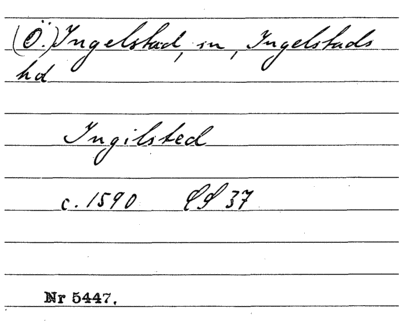 (Ö.) Ingelstad, sn, Ingelstads
hd
Ingilsted
c. 1590 LS 37
Nr 5447.